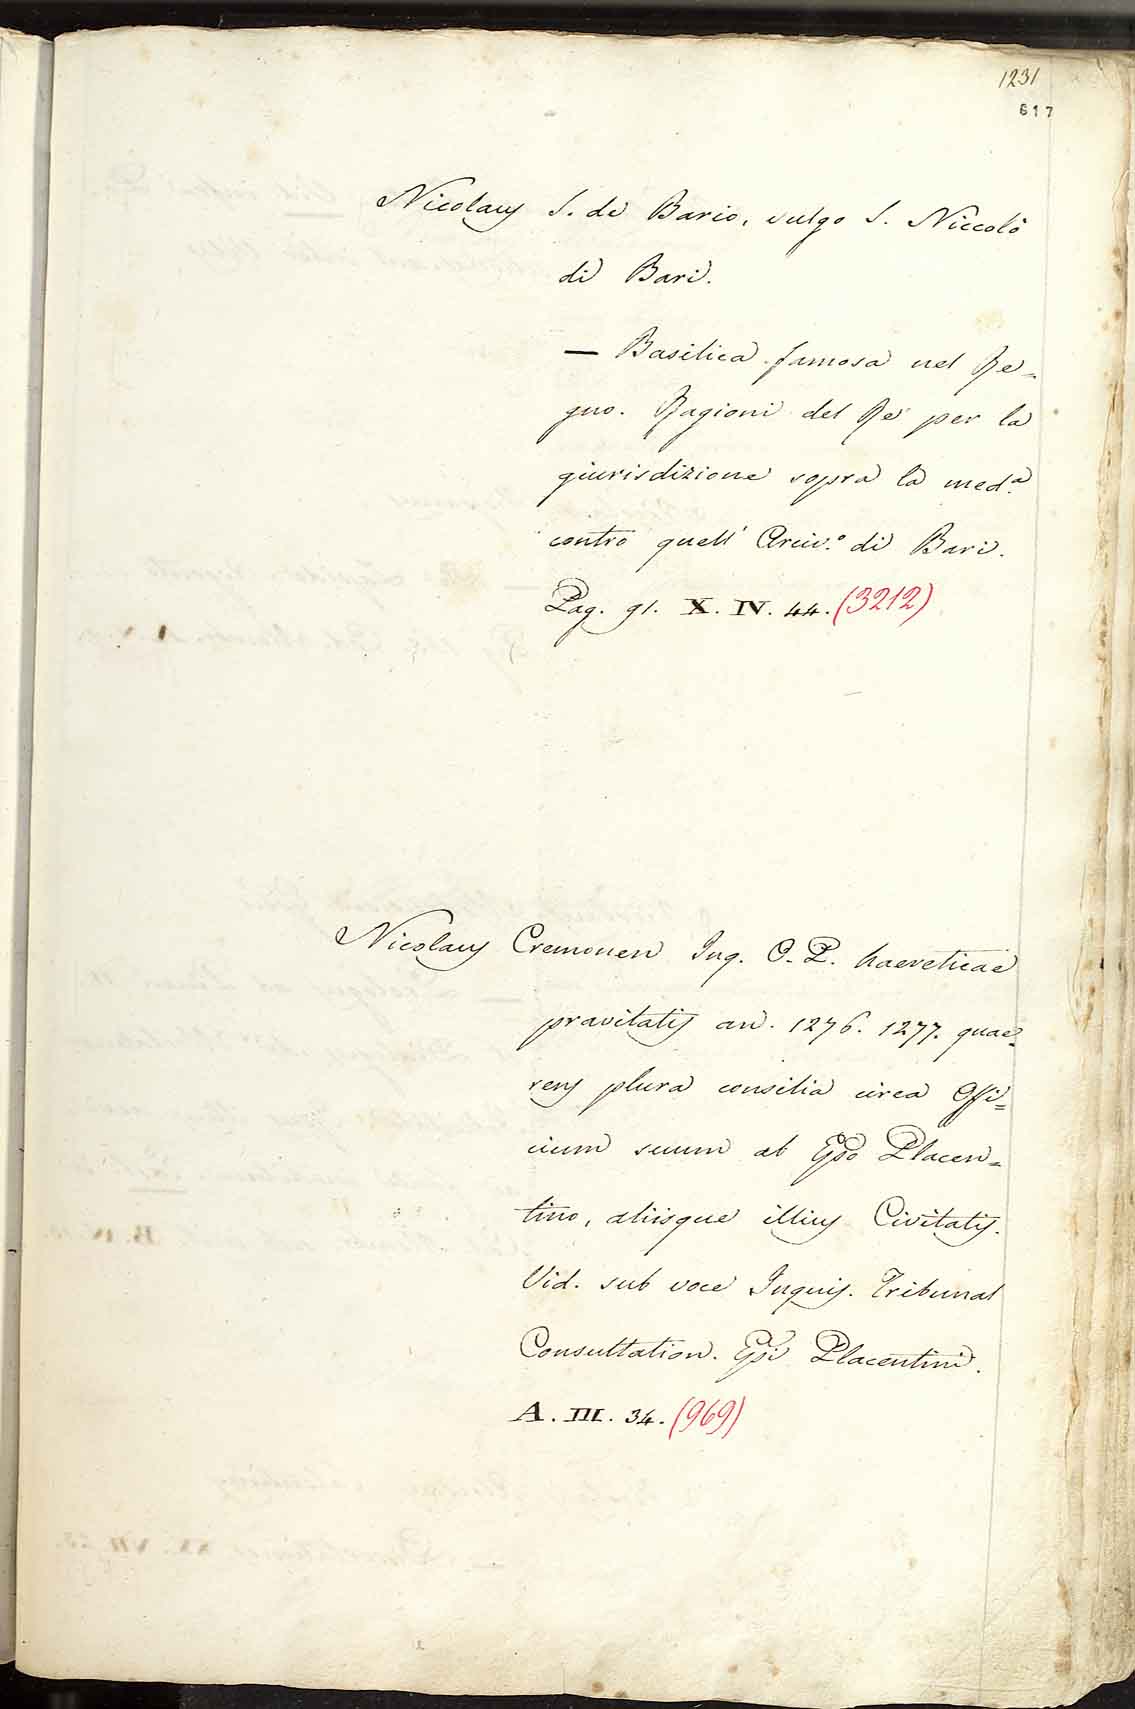 1231
617
Nicolaus S. de Bario, vulgo S. Niccolò
di Bari.
— Basilica famosa nel Re=
gno. Ragioni del Re per la
giurisdizione sopra la med.ª
contro quell' Arciv.º di Bari.
Pag. 91. X. IV. 44. (3212)
Nicolaus Cremonen Inq. O. P. haereticae
pravitatis an. 1276. 1277. quae=
rens plura consilia circa Offi=
cium suum ab Epo Placen=
tino, aliisque illius Civitatis.
Vid. sub voce Inquis. Tribunal
Consultation. Epi Placentini.
A. III. 34. (969)